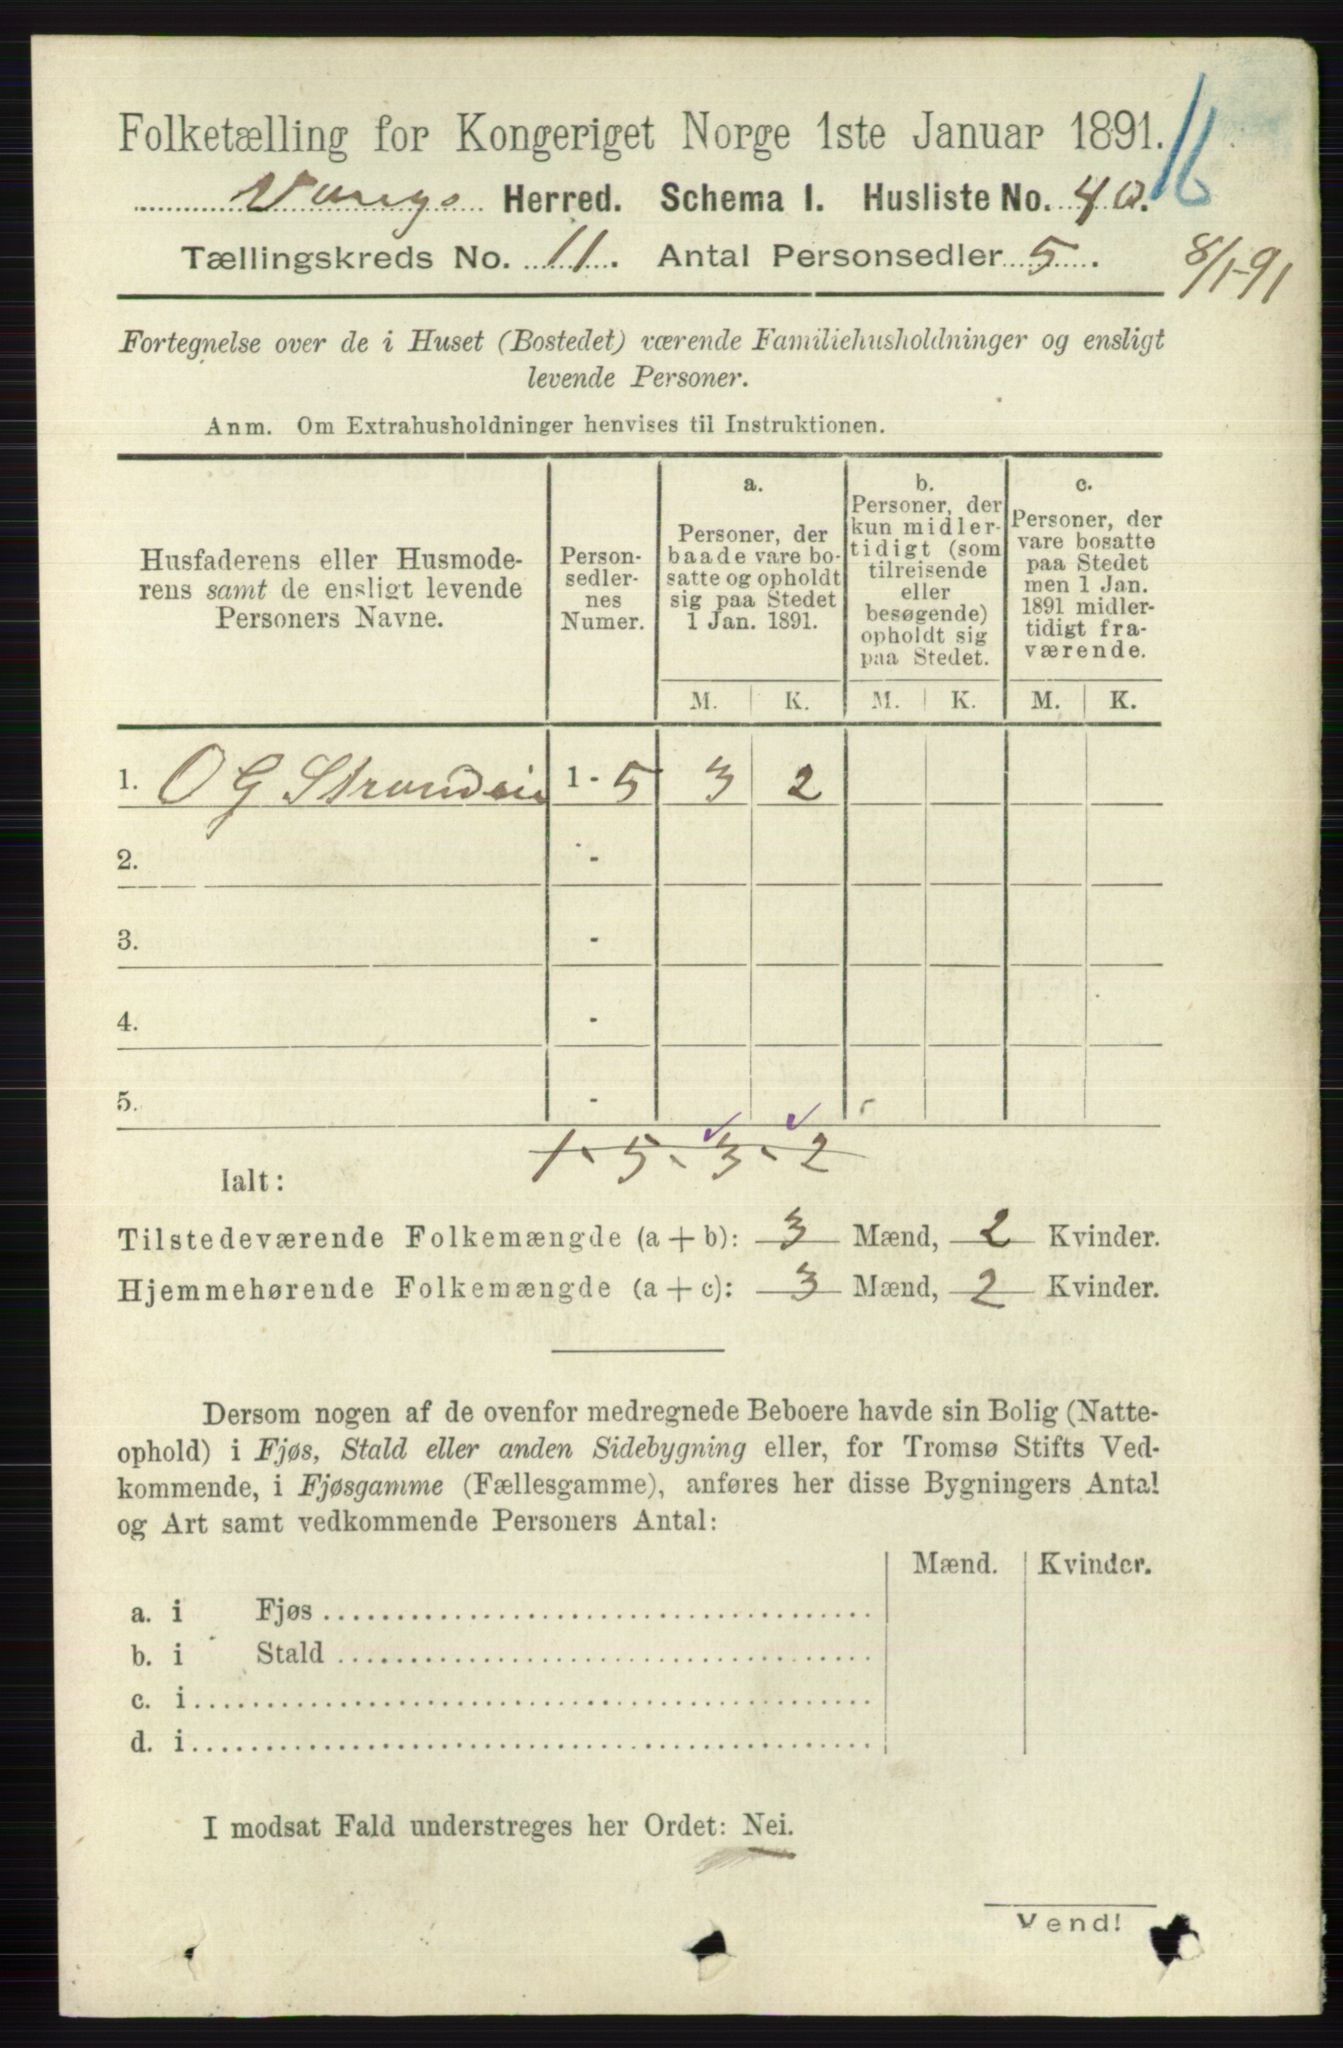 Folketælling for Kongeriget Norge 1ste Januar 1891.
16
Vangs Herred. Schema I. Husliste No. 40.
Tællingskreds No. 11. Antal Personsedler 5.
8/1-91
Fortegnelse over de i Huset (Bostedet) værende Familiehusholdninger og ensligt
levende Personer.
Anm. Om Extrahusholdninger henvises til Instruktionen.
Husfaderens eller Husmode-
rens samt de ensligt levende
Personers Navne.
Person-
sedler-
nes
Numer.
a.
Personer, der
baade vare bo-
satte og opholdt
sig paa Stedet
1 Jan. 1891.
b.
Personer, der
kun midler-
tidigt (som
tilreisende
eller
besøgende)
opholdt sig
paa Stedet.
c.
Personer, der
vare bosatte
paa Stedet
men 1 Jan.
1891 midler-
tidigt fra-
værende.
M. K. M. K. M. K.
1. O G 1 - 5 3 2
2. -
3. -
4. -
5. -
1 . 5 . 3 . 2
Ialt:
Tilstedeværende Folkemængde (a + b): 3 Mænd, 2 Kvinder.
Hjemmehørende Folkemængde (a + c): 3 Mænd, 2 Kvinder.
Dersom nogen af de ovenfor medregnede Beboere havde sin Bolig (Natte-
ophold) i Fjøs, Stald eller anden Sidebygning eller, for Tromsø Stifts Ved-
kommende, i Fjøsgamme (Fællesgamme), anføres her disse Bygningers Antal
og Art samt vedkommende Personers Antal:
Mænd. Kvinder.
a. i Fjøs
b. i Stald
c. i
d. i
I modsat Fald understreges her Ordet: Nei.
Vend!